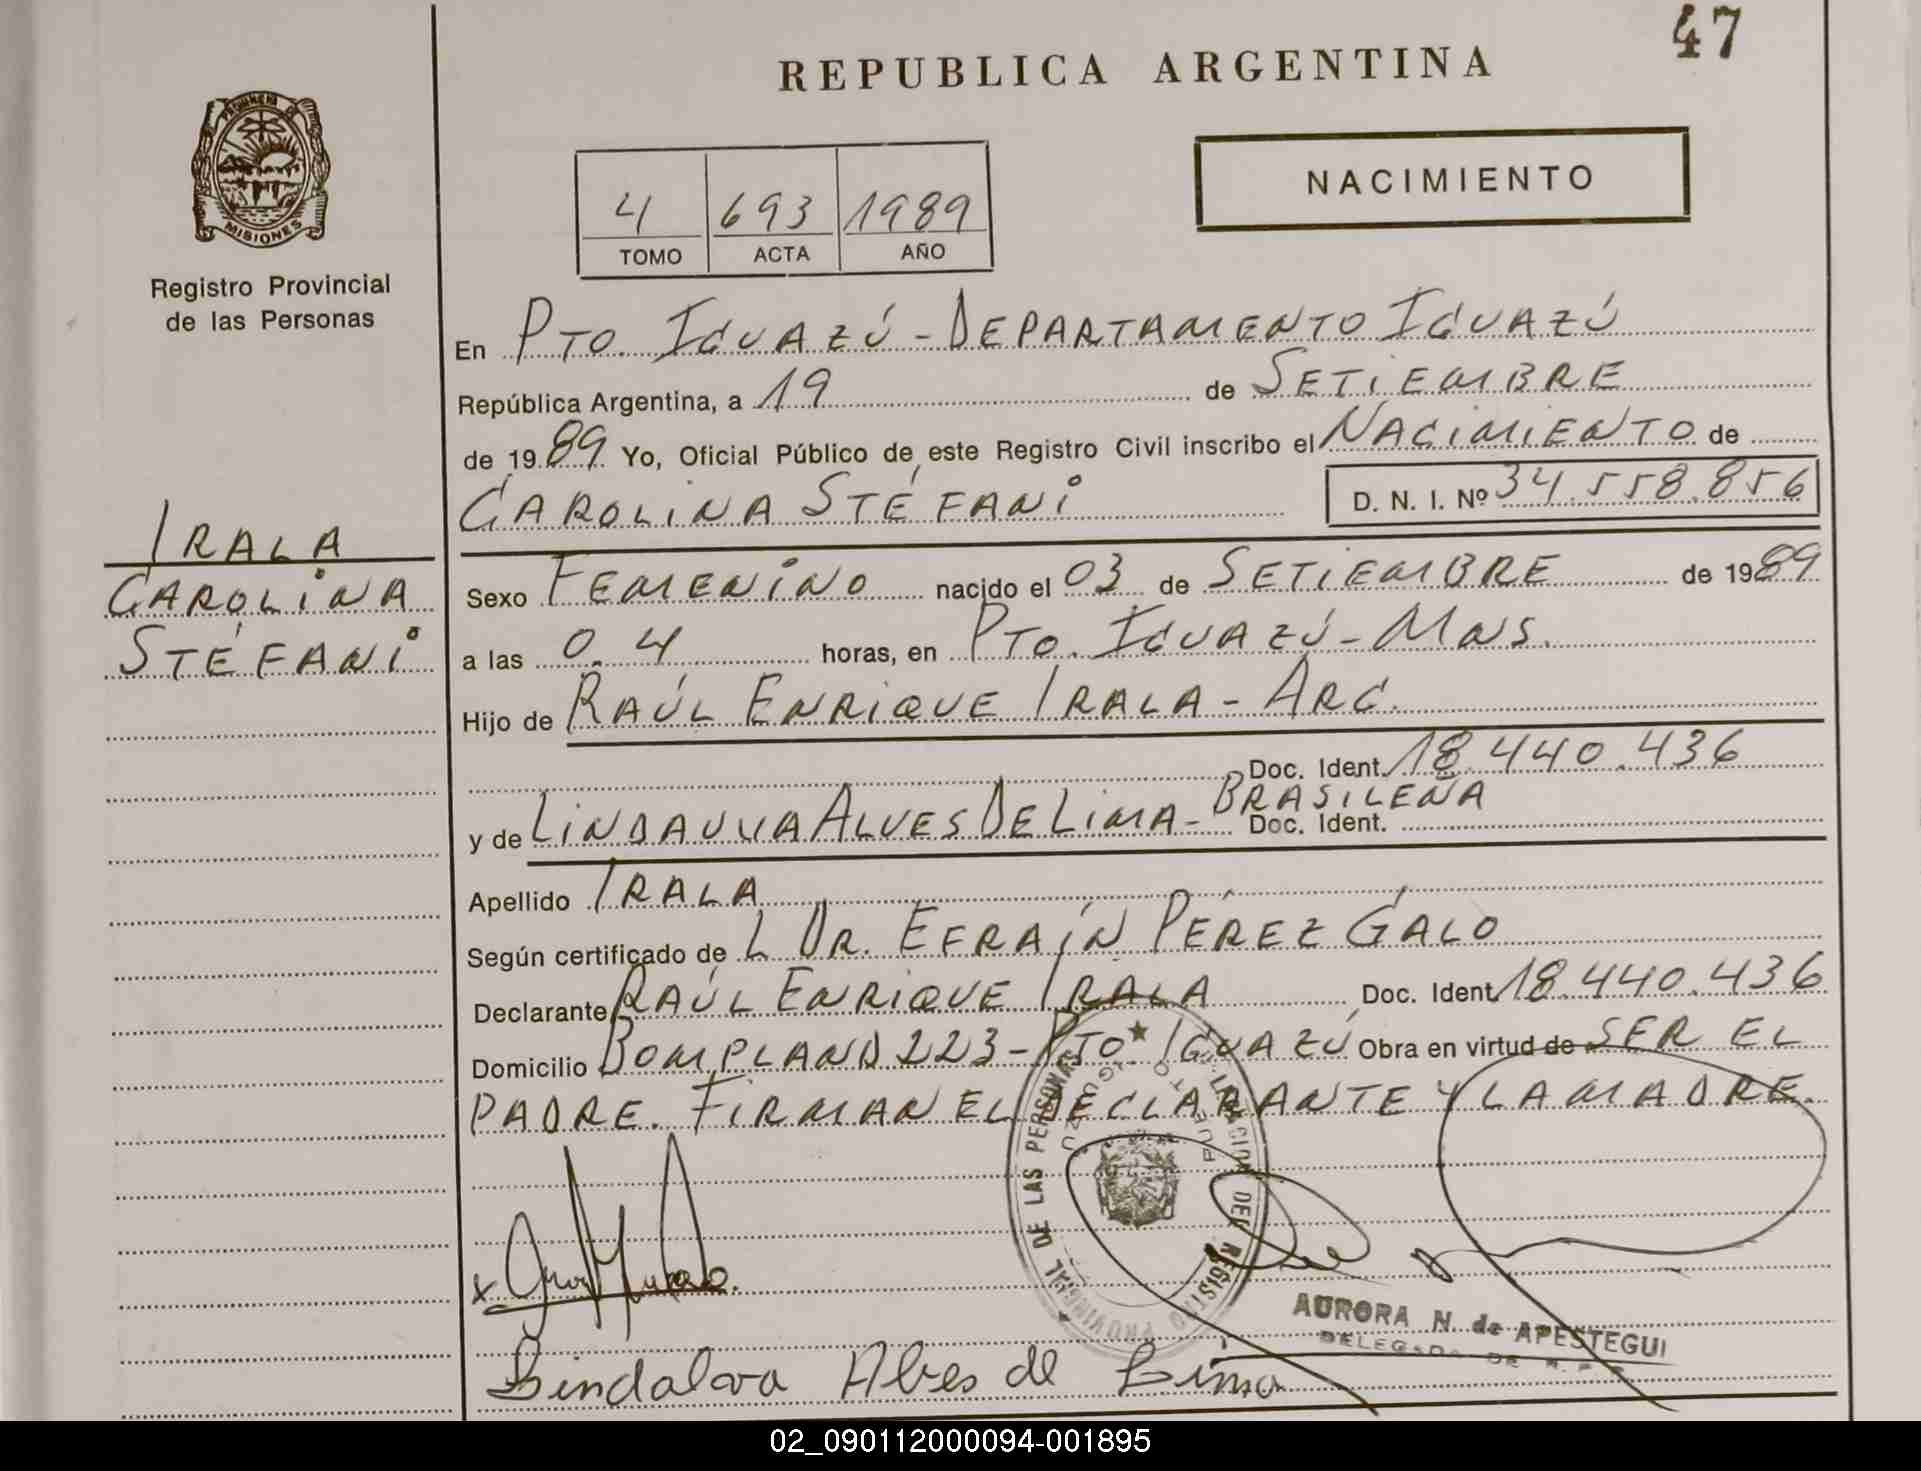 47
REPUBLICA ARGENTINA
PROVINCIA DE
MISIONES
Registro Provincial
de las Personas
4 693 1989
TOMO ACTA AÑO
NACIMIENTO
En PTO. IGUAZÚ - DEPARTAMENTO IGUAZÚ
República Argentina, a 19 de SETIEMBRE
de 1989 Yo, Oficial Público de este Registro Civil inscribo el NACIMIENTO de
CAROLINA STÉFANI D. N. I. Nº 34.558.856
IRALA
CAROLINA
STÉFANI
Sexo FEMENINO nacido el 03 de SETIEMBRE de 1989
a las 0.4 horas, en PTO. IGUAZÚ - MNS.
Hijo de RAÚL ENRIQUE IRALA - ARG.
Doc. Ident. 18.440.436
y de LINDAUVA ALVES DE LIMA - BRASILEÑA Doc. Ident.
Apellido IRALA
Según certificado de L DR. EFRAÍN PÉREZ GALO
Declarante RAÚL ENRIQUE IRALA Doc. Ident. 18.440.436
Domicilio BOMPLAND 223 - PTO. IGUAZÚ Obra en virtud de SER EL
PADRE. FIRMAN EL DECLARANTE Y LA MADRE.
DELEGACION DEL REGISTRO PROVINCIAL DE LAS PERSONAS
PUERTO IGUAZU
AURORA N. de APESTEGUI
DELEGADA DE R. P. P.
Lindalva Alves de Lima
02_090112000094-001895